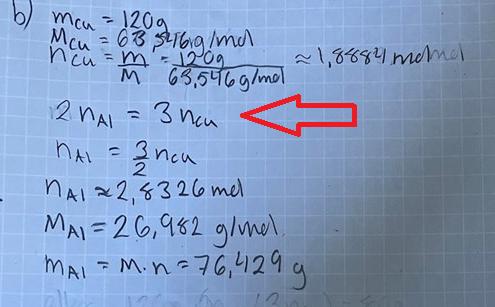 b) m_Cu = 120g
M_Cu = 63,546 g/mol
n_Cu = m/M = 120g/63,546 g/mol ≈ 1,8884 mol
2 n_Al = 3 n_Cu
n_Al = 3/2 n_Cu
n_Al ≈ 2,8326 mol
M_Al = 26,982 g/mol
m_Al = M · n = 76,429 g